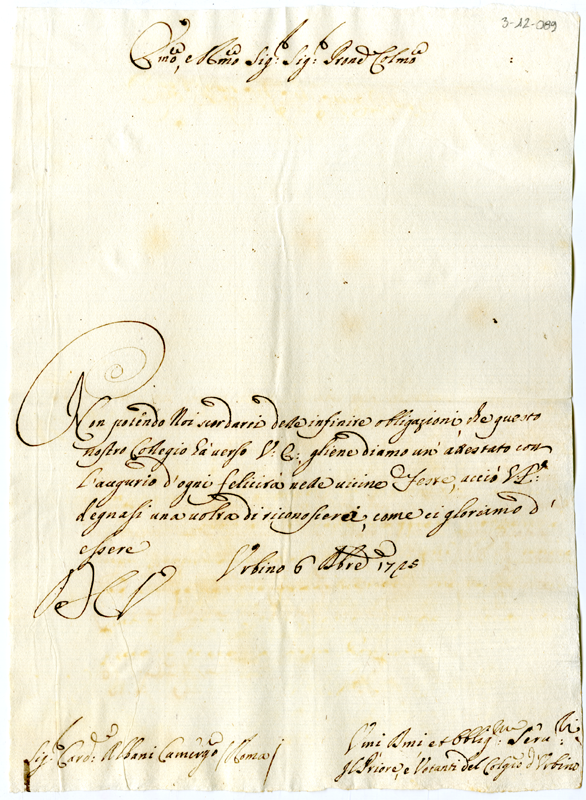 3-12-089
Emo, e Rmo Sig.r Sig.r Pron Colmo
Non potendo Noi scordarci delle infinite obligazioni che questo
nostro Collegio hà verso V: E: gliene diamo un' attestato con
l'augurio d'ogni felicità nelle vicine Feste, acciò
degnasi una volta di riconoscerci, come ci gloriamo d'
essere
Urbino 6 Xbre 1725
D E V
Sig.r Card: Albani Camergo (Roma)
Umi Dmi et Obblig.mi Serv.ri
Il Priore, e Vocanti del Colgio d'Urbino